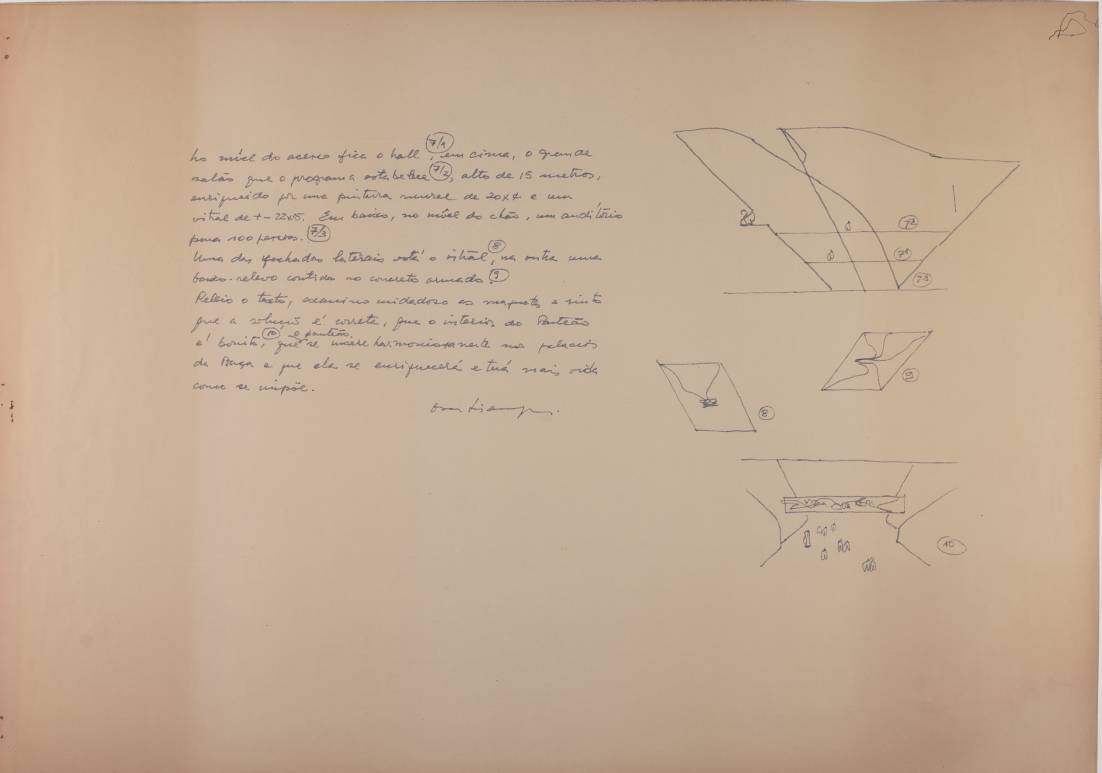 No nível do acesso fica o hall (7/1), em cima, o grande
salão que o programa estabelece (7/2), alto de 15 metros,
enriquecido por uma pintura mural de 20x4 e um
vitral de +-22x15. Em baixo, no nível do chão, um auditório
para 100 pessoas. (7/3)
Numa das fachadas laterais está o vitral, (8) na outra uma
baixo-relevo contida no concreto armado. (9)
Releio o texto, examino cuidadoso as maquetes e sinto
que a solução é correta, que o interior do Panteão
é bonito, (10) que o panteão se insere harmoniosamente nos palácios
da Praça e que ela se enriquecerá e terá mais vida
como se impõe.
Oscar Niemeyer.
72
71
73
8
9
10